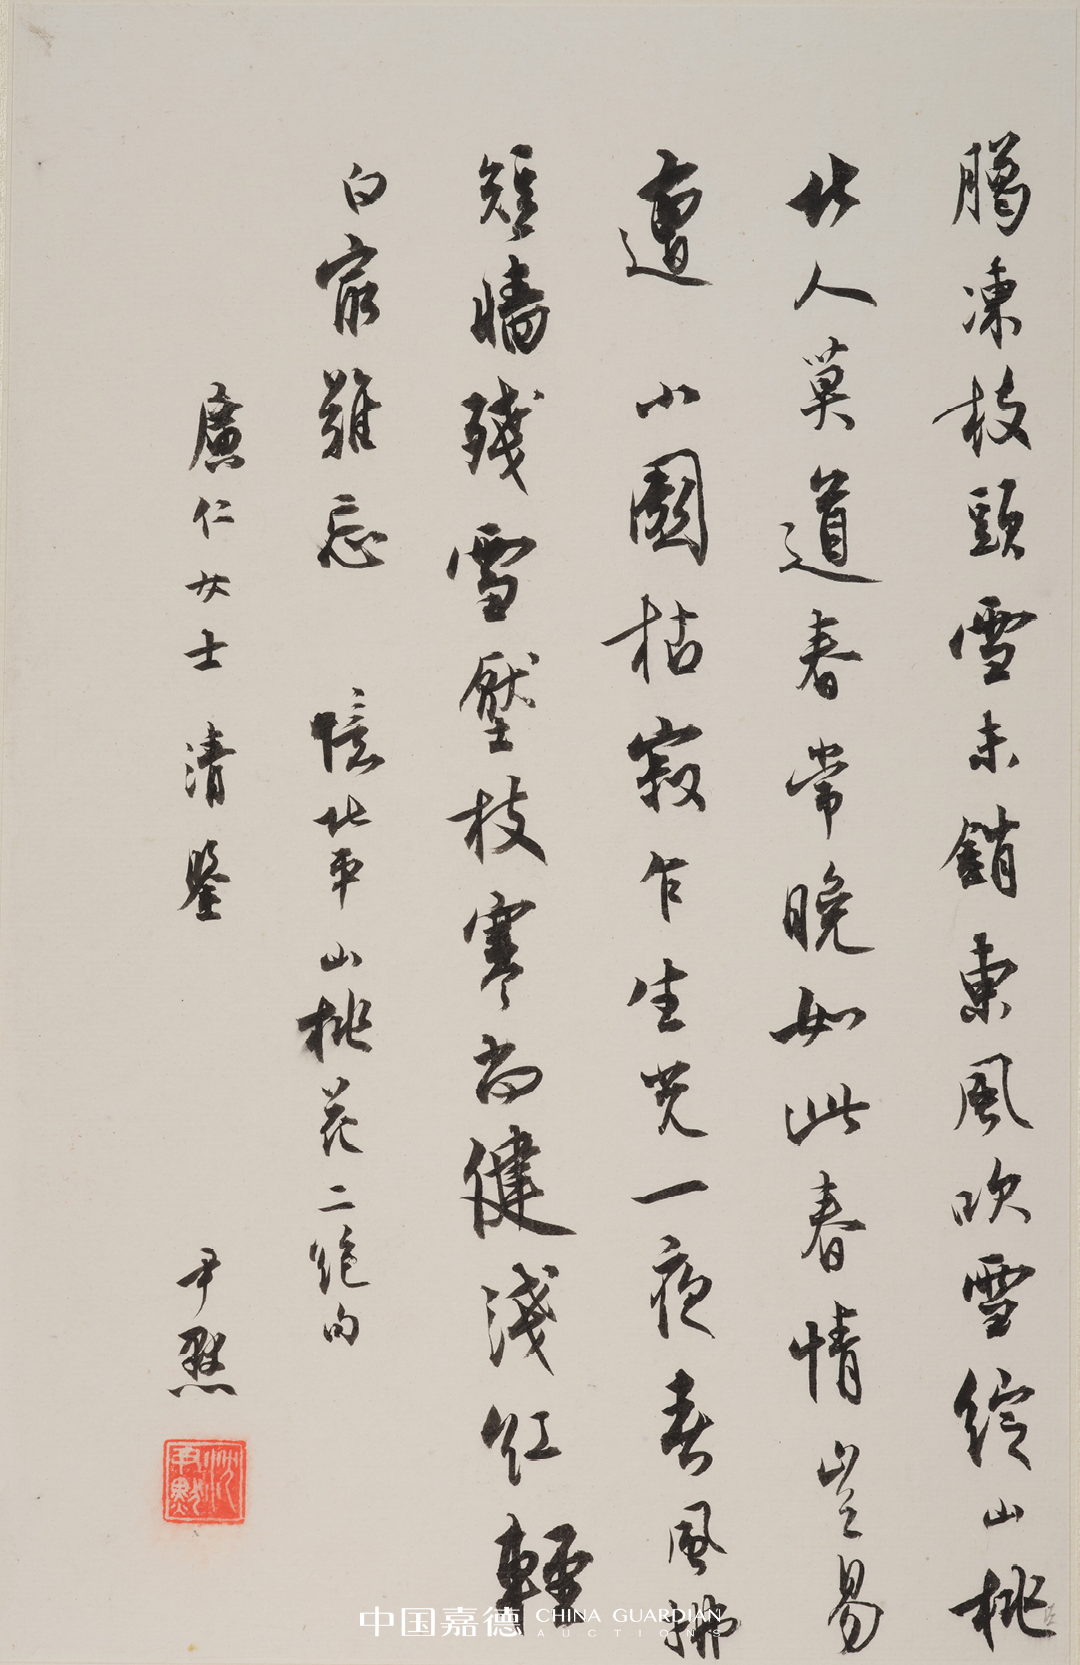 腊凍枝頭雪未銷東風吹雪綻山桃
北人莫道春常晚如此春情豈易
遭　小園枯寂乍生光一夜春風拂
短牆殘雪壓枝寒尚健淺紅輕
白最難忘　憶北平山桃花二絕句
廉仁女士清鑒
尹默
沈尹默
中国嘉德 CHINA GUARDIAN
AUCTIONS